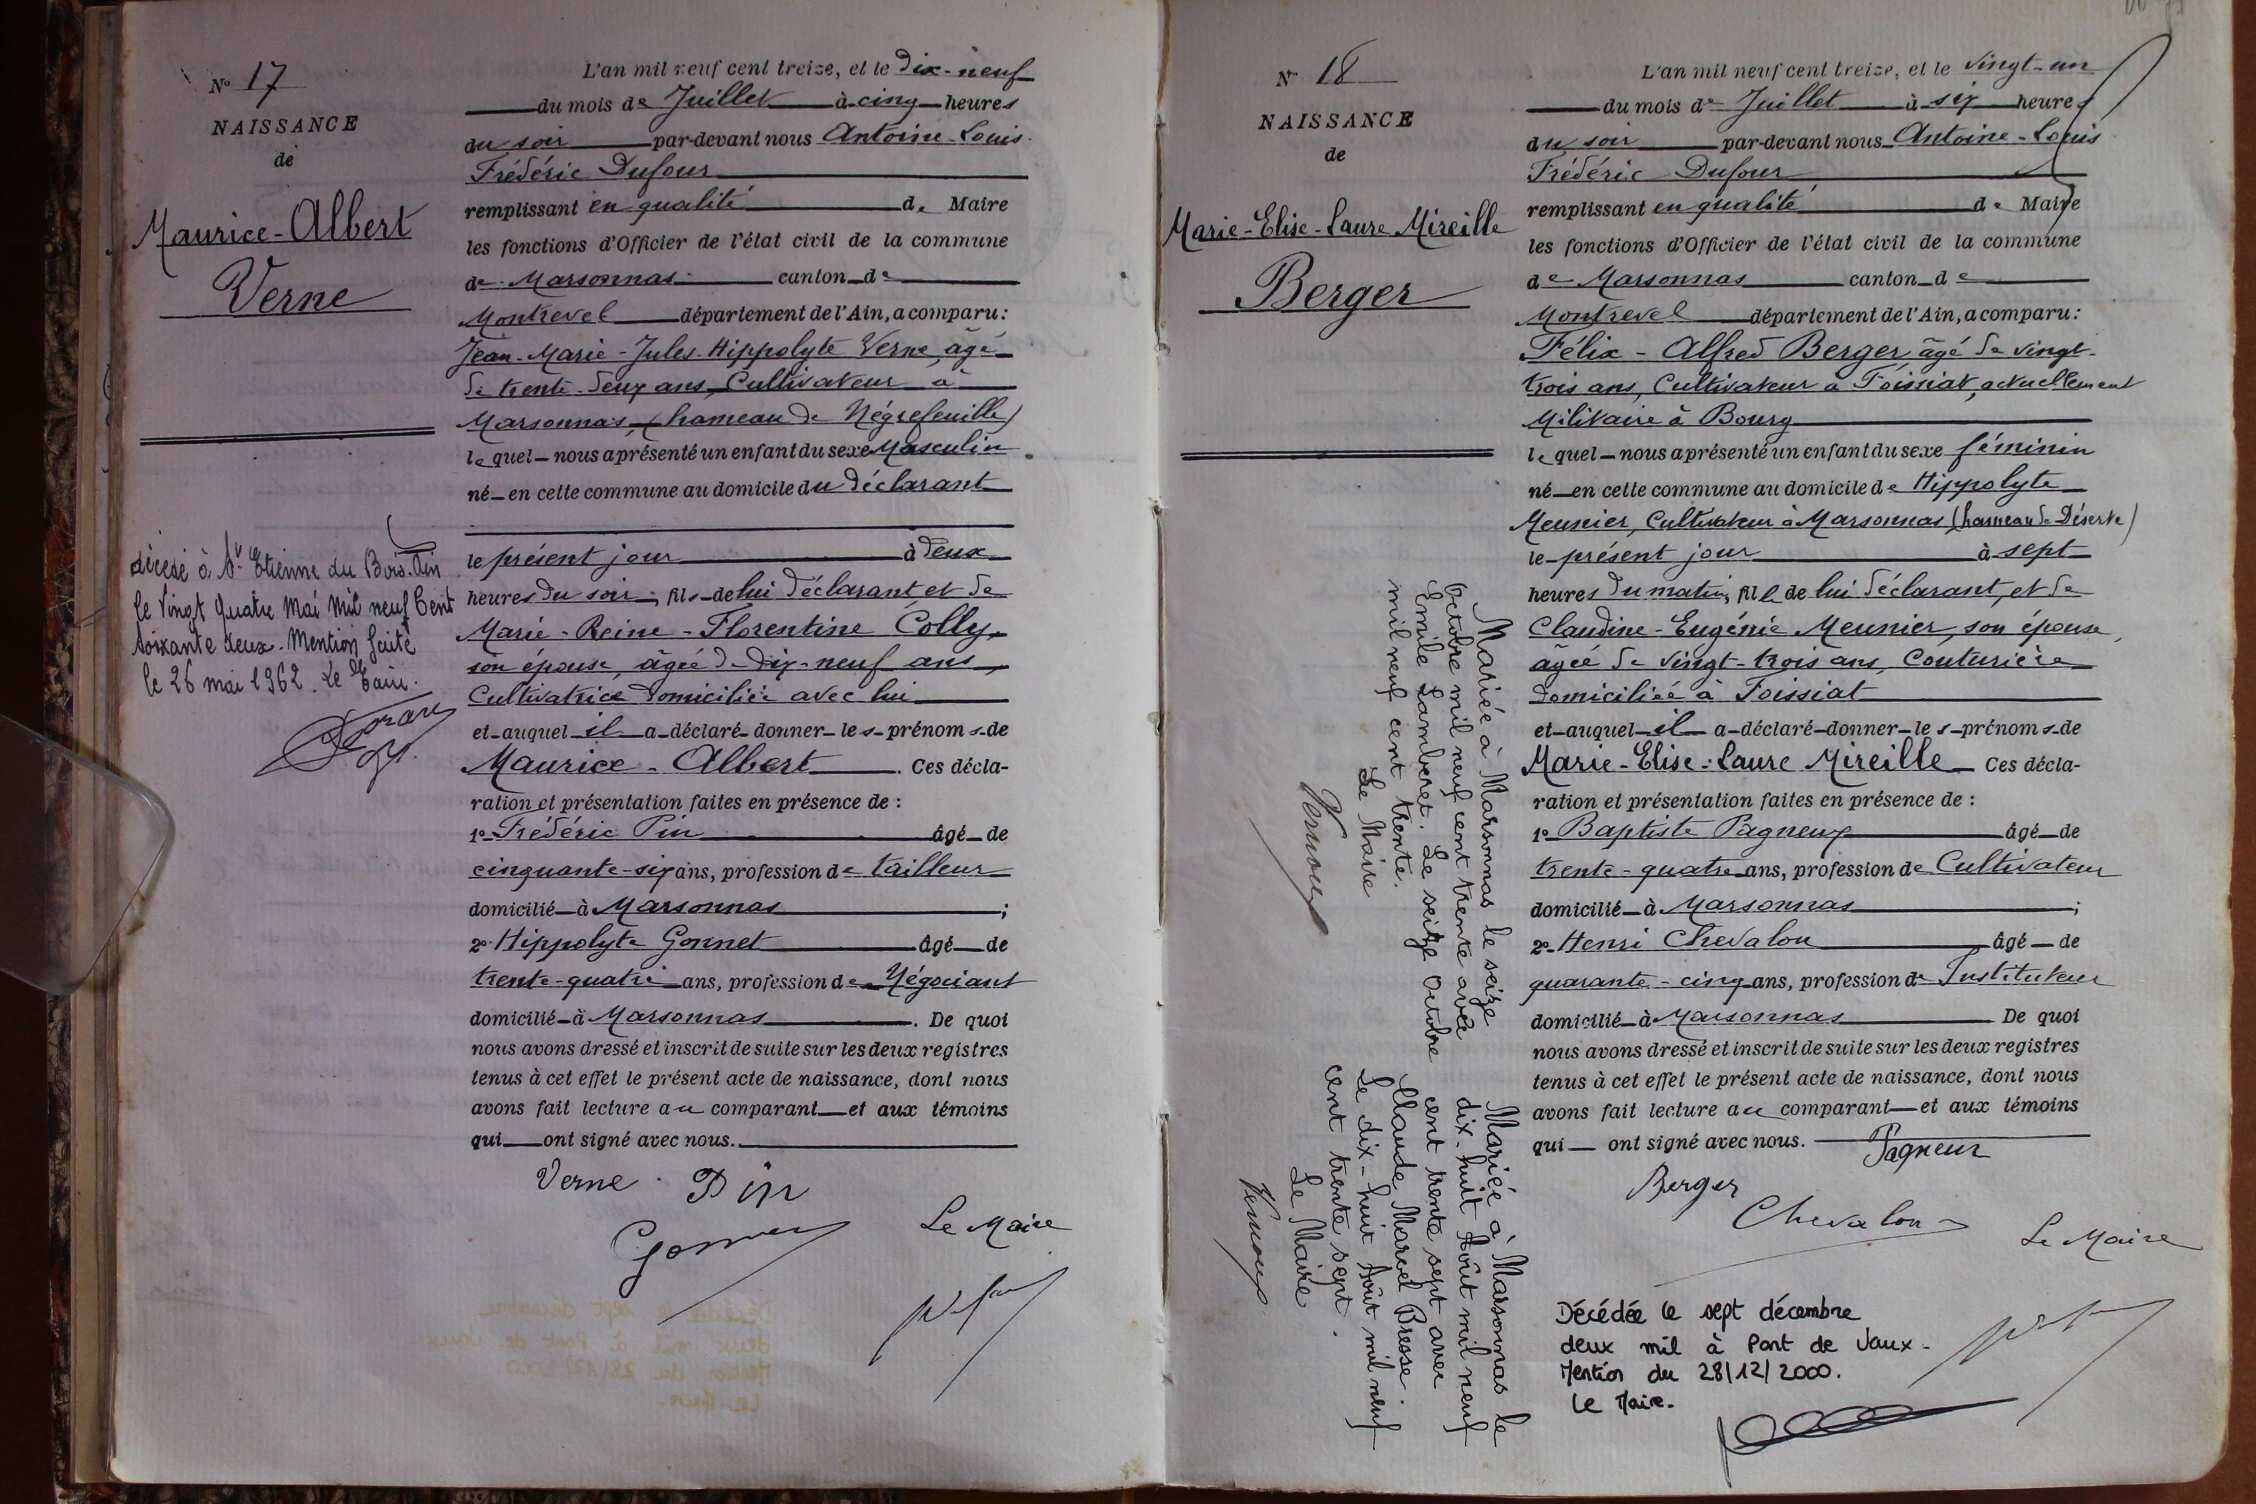 No 17
NAISSANCE
de
Maurice-Albert
Verne
décédé à St Etienne du Bois. Ain
le Vingt Quatre Mai Mil neuf Cent
soixante deux. Mention faite
le 26 mai 1962. Le Maire.
L'an mil neuf cent treize, et le dix-neuf
du mois de Juillet à cinq heures
du soir par-devant nous Antoine-Louis
Frédéric Dufour
remplissant en qualité de Maire
les fonctions d'Officier de l'état civil de la commune
de Marsonnas canton de
Montrevel département de l'Ain, a comparu:
Jean-Marie-Jules-Hippolyte Verne, âgé
de trente-deux ans, Cultivateur à
Marsonnas, (hameau de Négrefeuille)
lequel nous a présenté un enfant du sexe Masculin
né en cette commune au domicile du déclarant
le présent jour à deux
heures du soir, fils de lui déclarant, et de
Marie-Reine-Florentine Colly,
son épouse, âgée de dix-neuf ans,
Cultivatrice domiciliée avec lui
et auquel il a déclaré donner les prénoms de
Maurice-Albert. Ces décla-
ration et présentation faites en présence de :
1o Frédéric Pin âgé de
cinquante-six ans, profession de tailleur
domicilié à Marsonnas ;
2o Hippolyte Gonnet âgé de
trente-quatre ans, profession de Négociant
domicilié à Marsonnas. De quoi
nous avons dressé et inscrit de suite sur les deux registres
tenus à cet effet le présent acte de naissance, dont nous
avons fait lecture au comparant et aux témoins
qui ont signé avec nous.
Verne. Pin
Gonnet Le Maire
No 18
NAISSANCE
de
Marie-Elise-Laure Mireille
Berger
Mariée à Marsonnas le seize
octobre mil neuf cent trente avec
Emile Lamberet. Le seize Octobre
mil neuf cent trente.
Le Maire
Vernoux
Mariée à Marsonnas le
dix-huit Août mil neuf
cent trente sept avec
Claude Marcel Bresse.
Le dix-huit Août mil neuf
cent trente sept.
Le Maire
Vernoux
L'an mil neuf cent treize, et le vingt-un
du mois de Juillet à six heures
du soir par-devant nous Antoine-Louis
Frédéric Dufour
remplissant en qualité de Maire
les fonctions d'Officier de l'état civil de la commune
de Marsonnas canton de
Montrevel département de l'Ain, a comparu:
Félix-Alfred Berger, âgé de vingt-
trois ans, Cultivateur à Foissiat, actuellement
Militaire à Bourg
lequel nous a présenté un enfant du sexe féminin
né en cette commune au domicile de Hippolyte
Meunier, Cultivateur à Marsonnas (hameau de Déserte)
le présent jour à sept
heures du matin, fille de lui déclarant, et de
Claudine-Eugénie Meunier, son épouse,
âgée de vingt-trois ans, Couturière
domiciliée à Foissiat
et auquel il a déclaré donner les prénoms de
Marie-Elise-Laure Mireille Ces décla-
ration et présentation faites en présence de :
1o Baptiste Pagneux âgé de
trente-quatre ans, profession de Cultivateur
domicilié à Marsonnas ;
2o Henri Chevalon âgé de
quarante-cinq ans, profession de Instituteur
domicilié à Marsonnas De quoi
nous avons dressé et inscrit de suite sur les deux registres
tenus à cet effet le présent acte de naissance, dont nous
avons fait lecture au comparant et aux témoins
qui ont signé avec nous.
Pagneux
Berger
Chevalon
Le Maire
Décédée le sept décembre
deux mil à Pont de Vaux.
Mention du 28/12/2000.
Le Maire.